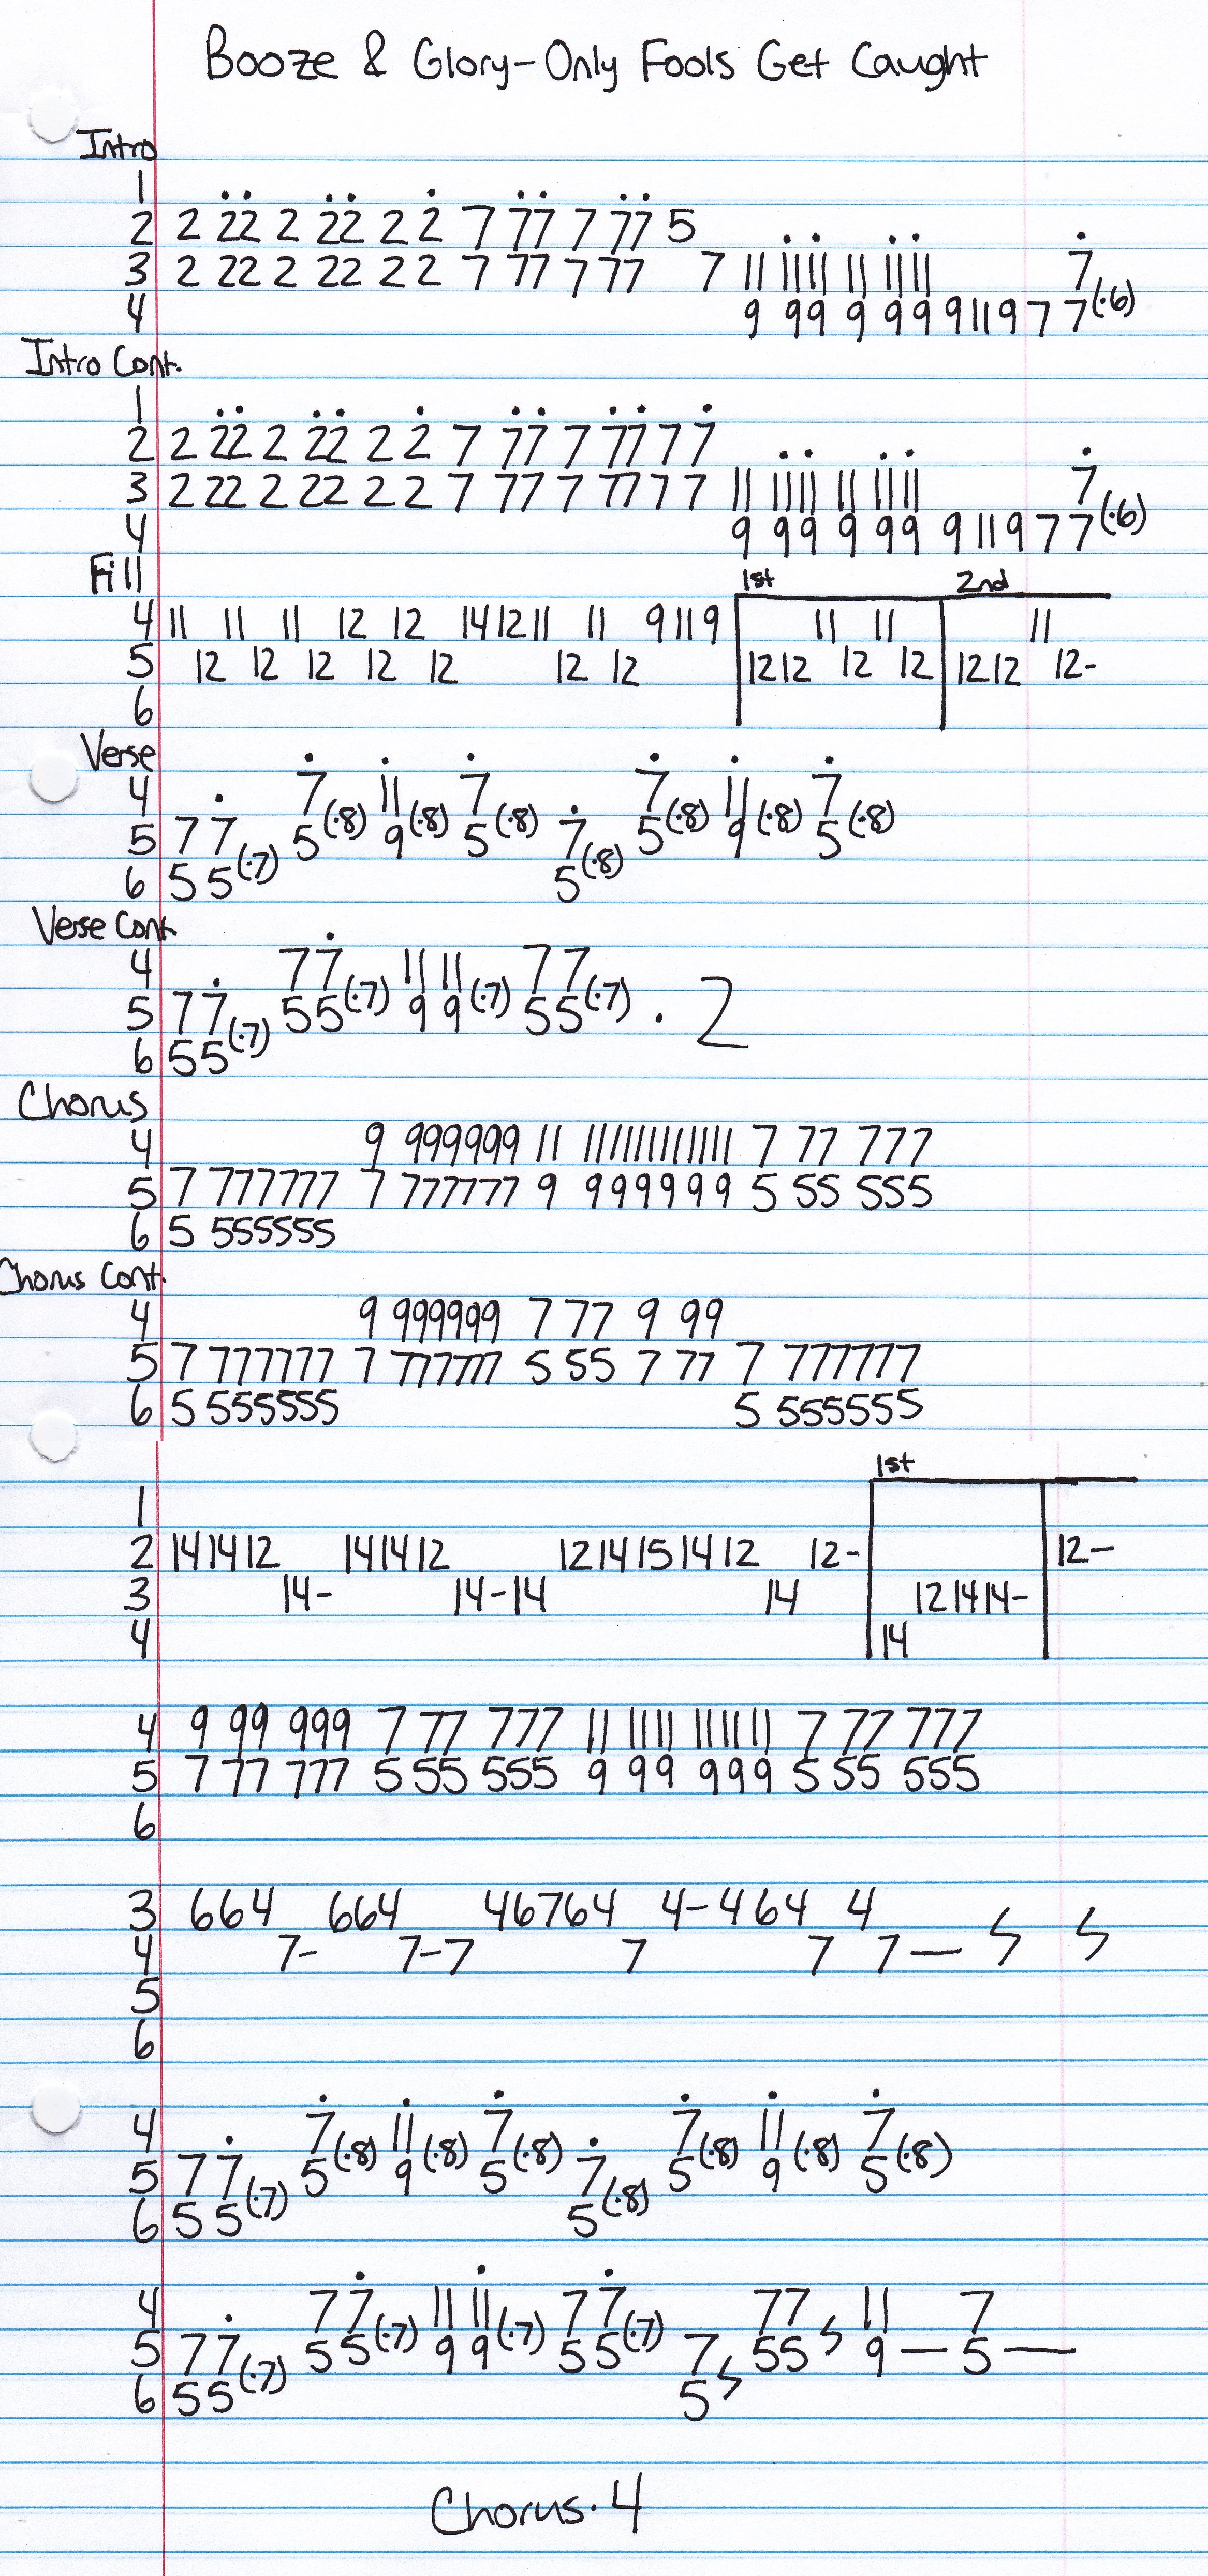 Booze & Glory-Only Fools Get Caught
Intro
1
2 2 22 2 22 2 2 7 77 7 77 5
3 2 22 2 22 2 2 7 77 7 77 7 11 1111 11 1111 7
4 9 99 9 99 9 11 9 7 7(·6)
Intro Cont.
1
2 2 22 2 22 2 2 7 77 7 77 7 7
3 2 22 2 22 2 2 7 77 7 77 7 7 11 1111 11 1111 7
4 9 99 9 99 9 11 9 7 7(·6)
Fill
1st 2nd
4 11 11 11 12 12 14 12 11 11 9 11 9 11 11 11
5 12 12 12 12 12 12 12 12 12 12 12 12 12 12-
6
Verse
4 7(·8) 11(·8) 7(·8) 7(·8) 11(·8) 7(·8)
5 7 7(·7) 5 9 5 7(·8) 5 9 5
6 5 5 5
Verse Cont.
4 77(·7) 11 11(·7) 77(·7)
5 77(·7) 55 9 9 55 · 2
6 55
Chorus
4 9 999999 11 111111111111 7 77 777
5 7 777777 7 777777 9 999999 5 55 555
6 5 555555
Chorus Cont.
4 9 999999 7 77 9 99
5 7 777777 7 777777 5 55 7 77 7 777777
6 5 555555 5 555555
1st
1
2 14 14 12 14 14 12 12 14 15 14 12 12- 12-
3 14- 14-14 14 12 14 14-
4 14
4 9 99 999 7 77 777 11 1111 111111 7 77 777
5 7 77 777 5 55 555 9 99 999 5 55 555
6
3 664 664 46764 4-464 4
4 7- 7-7 7 7 7—
5
6
4 7(·8) 11(·8) 7(·8) 7(·8) 11(·8) 7(·8)
5 7 7(·7) 5 9 5 7(·8) 5 9 5
6 5 5 5
4 77(·7) 11 11(·7) 77(·7) 77 11 7
5 77(·7) 55 9 9 55 7 55 9— 5—
6 55 5
Chorus·4